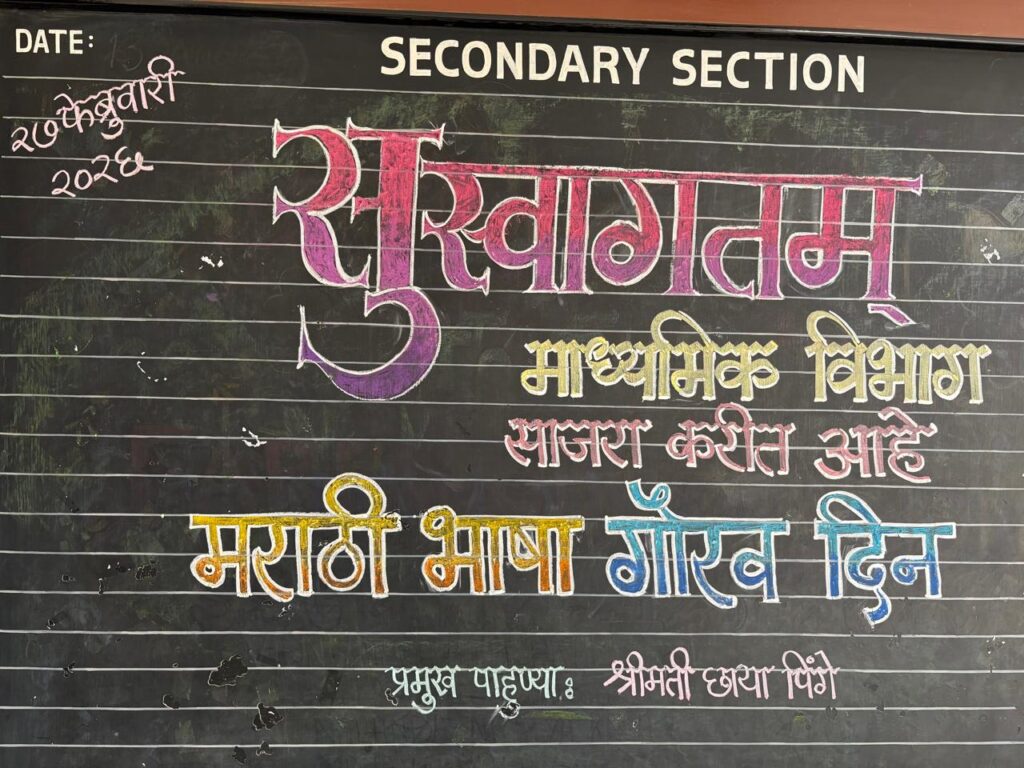 DATE:
SECONDARY SECTION
२७ फेब्रुवारी
२०२६
सुस्वागतम्
माध्यमिक विभाग
साजरा करीत आहे
मराठी भाषा गौरव दिन
प्रमुख पाहुण्या: श्रीमती छाया पिंगे